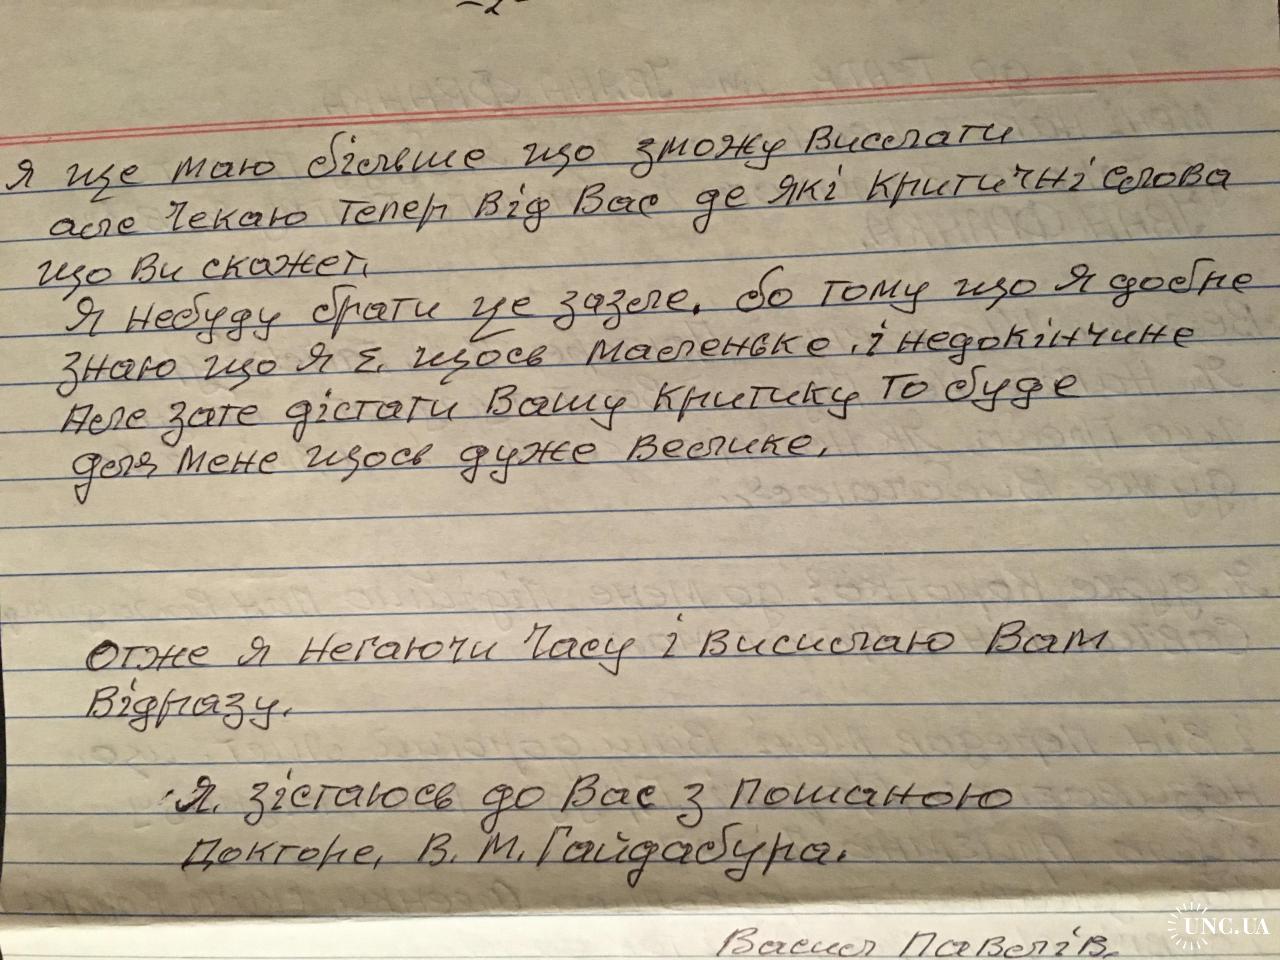 -2-
Я ще маю більше що зможу Вислати
але Чекаю тепер Від Вас де які критичні слова
що Ви скажет.
Я небуду брати це зазле. бо тому що Я добре
знаю що Я Є. щось маленьке. і недокінчине
Але зате дістати Вашу Критику то буде
для мене щось дуже Велике.
Отже я негаючи Часу і Висилаю Вам
Відразу.
Я. зістаюсь до Вас з пошаною
Докторе, В. М. Гайдабура.
Васил Павлів.
UNC.UA